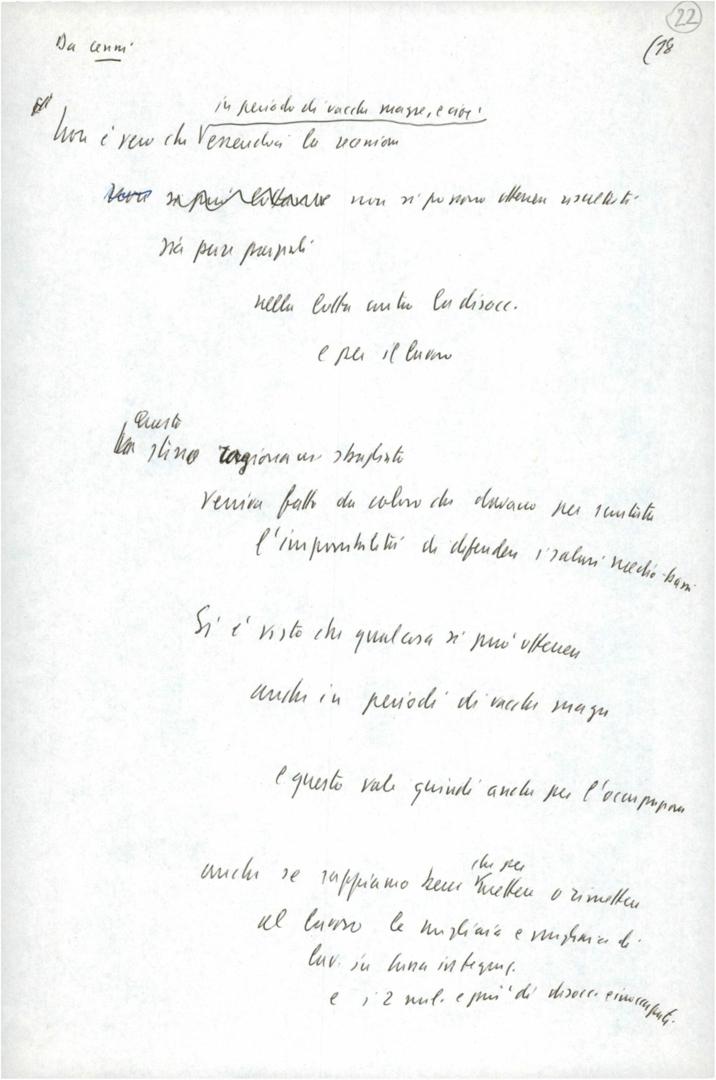 Da cenni
22
(18
in periodo di vacche magre, e cioè
Non è vero che essendoci la recessione
non si possono ottenere risultati
sia pure parziali
nella lotta contro la disocc.
e per il lavoro
Questo
stesso ragionam. sbagliato
veniva fatto da coloro che davano per scontata
l'impossibilità di difendere i salari medio-bassi
Si è visto che qualcosa si può ottenere
anche in periodi di vacche magre
e questo vale quindi anche per l'occupazione
che per
anche se sappiamo bene mettere o rimettere
al lavoro le migliaia e migliaia di
lav. in cassa integraz.
e i 2 mil. e più di disocc. e inoccupati.